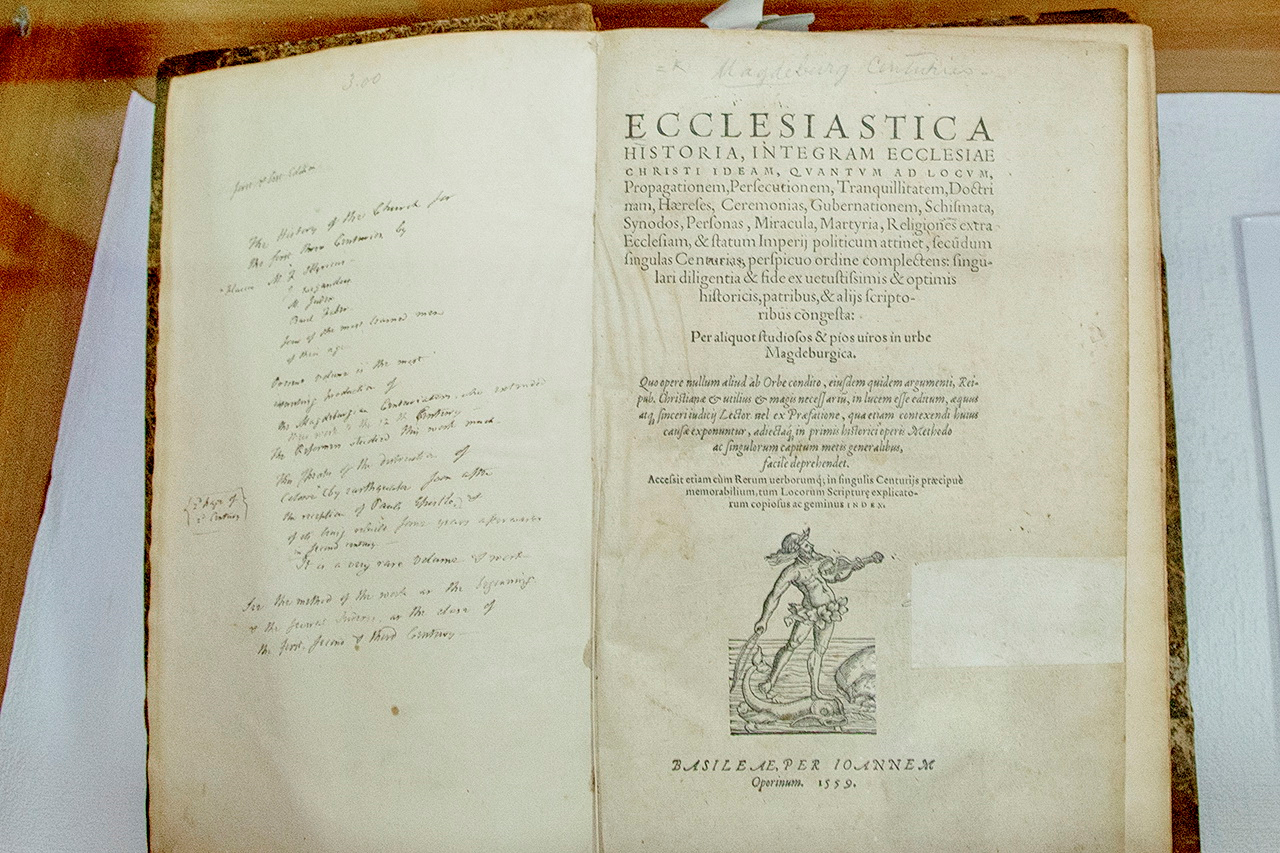 3.00
The History of the Church for
the first three Centuries by
M. F. Illyricus
M. Judex
four of the most learned men
of their age.
Present volume is the most
production of
the Magdeburg Centuriators, who extended
their work to the Century
The Reformers studied this work much.
The threats of the destruction of
by earthquake soon after
the reception of Pauls Epistle, &
of its being rebuilt some years afterwards
in second century
It is a very rare volume & work
See the method of the work at the beginning
& the General History, at the close of
the first, second & third Century
2d
2d Century
Magdeburg Centuries
ECCLESIASTICA
HISTORIA, INTEGRAM ECCLESIAE
CHRISTI IDEAM, QVANTVM AD LOCVM,
Propagationem, Persecutionem, Tranquillitatem, Doctri
nam, Hæreses, Ceremonias, Gubernationem, Schismata,
Synodos, Personas, Miracula, Martyria, Religiones extra
Ecclesiam, & statum Imperij politicum attinet, secundum
singulas Centurias, perspicuo ordine complectens: singu-
lari diligentia & fide ex uetustissimis & optimis
historicis, patribus, & alijs scripto-
ribus congesta:
Per aliquot studiosos & pios uiros in urbe
Magdeburgica.
Quo opere nullum aliud ab Orbe condito, eiusdem quidem argumenti, Rei-
pub. Christianæ & utilius & magis necessariũ, in lucem esse editum, æquus
atq; sinceri iudicij Lector uel ex Præfatione, qua etiam contexendi huius
causæ exponuntur, adiectaq; in primis historici operis Methodo
ac singulorum capitum metis generalibus,
facile deprehendet.
Accessit etiam cùm Rerum uerborumq; in singulis Centurijs præcipuè
memorabilium, tum Locorum Scripturę explicato-
rum copiosus ac geminus INDEX.
BASILEAE, PER IOANNEM
Oporinum. 1559.